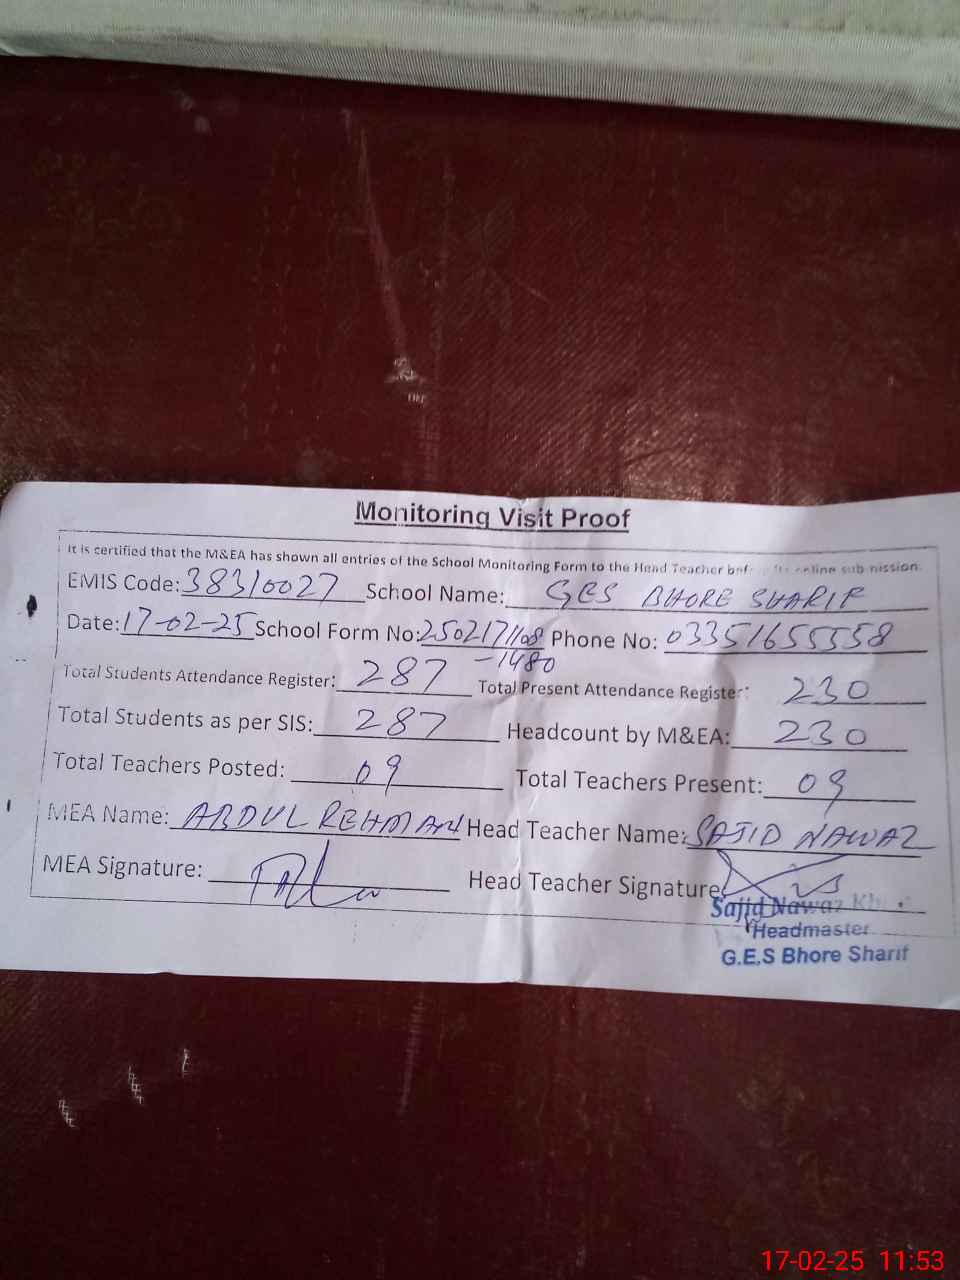 Monitoring Visit Proof
It is certified that the M&EA has shown all entries of the School Monitoring Form to the Head Teacher before its online submission.
EMIS Code: 38310027 School Name: GES BHORE SHARIF
Date: 17-02-25 School Form No: 2502171108 Phone No: 03351655558
-1480
Total Students Attendance Register: 287 Total Present Attendance Register: 230
Total Students as per SIS: 287 Headcount by M&EA: 230
Total Teachers Posted: 09 Total Teachers Present: 09
MEA Name: ABDUL REHMAN Head Teacher Name: SAJID NAWAZ
MEA Signature: Head Teacher Signature
Sajid Nawaz
Headmaster
G.E.S Bhore Sharif
17-02-25 11:53